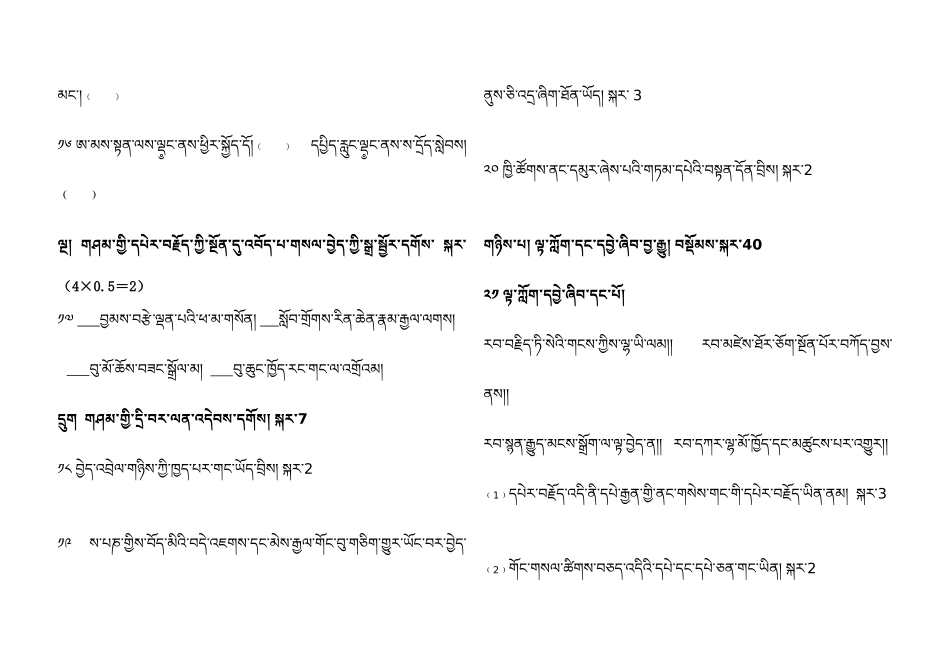 མང་། （ ）
༡༦ ཨ་མས་སྟན་ལས་ལྡང་ནས་ཕྱིར་སྐྱོད་དོ། （ ） དཔྱིད་རླུང་ལྡང་ནས་ས་དྲོད་སླེབས།
（ ）
ལྔ། གཤམ་གྱི་དཔེར་བརྗོད་ཀྱི་སྔོན་དུ་འབོད་པ་གསལ་བྱེད་ཀྱི་སྒྲ་སྦྱོར་དགོས་ སྐར་
（4×0.5＝2）
༡༧ ___བྱམས་བརྩེ་ལྡན་པའི་ཕ་མ་གསོན། ___སློབ་གྲོགས་རིན་ཆེན་རྣམ་རྒྱལ་ལགས།
___བུ་མོ་ཆོས་བཟང་སྒྲོལ་མ། ___བུ་ཆུང་ཁྱོད་རང་གང་ལ་འགྲོའམ།
དྲུག གཤམ་གྱི་དྲི་བར་ལན་འདེབས་དགོས། སྐར་7
༡༨ བྱེད་འབྲེལ་གཉིས་ཀྱི་ཁྱད་པར་གང་ཡོད་བྲིས། སྐར་2
༡༩ ས་པཎ་གྱིས་བོད་མིའི་བདེ་འཇགས་དང་མེས་རྒྱལ་གོང་བུ་གཅིག་གྱུར་ཡོང་བར་བྱེད་
ནུས་ཅི་འདྲ་ཞིག་ཐོན་ཡོད། སྐར་ 3
༢༠ ཁྱི་ཚོགས་ནང་དམུར་ཞེས་པའི་གཏམ་དཔེའི་བསྟན་དོན་བྲིས། སྐར་2
གཉིས་པ། ལྟ་ཀློག་དང་དབྱེ་ཞིབ་བྱ་རྒྱུ། བསྡོམས་སྐར་40
༢༡ ལྟ་ཀློག་དབྱེ་ཞིབ་དང་པོ།
རབ་བརྗིད་ཏི་སེའི་གངས་ཀྱིས་ལྷ་ཡི་ལམ།། རབ་མཛེས་ཐོར་ཅོག་སྔོན་པོར་བཀོད་བྱས་
ནས།།
རབ་སྙན་རྒྱུད་མངས་སྒྲོག་ལ་ལྟ་བྱེད་ན།། རབ་དཀར་ལྷ་མོ་ཁྱོད་དང་མཚུངས་པར་འགྱུར།།
（1）དཔེར་བརྗོད་འདི་ནི་དཔེ་རྒྱན་གྱི་ནང་གསེས་གང་གི་དཔེར་བརྗོད་ཡིན་ནམ། སྐར་3
（2）གོང་གསལ་ཚིགས་བཅད་འདིའི་དཔེ་དང་དཔེ་ཅན་གང་ཡིན། སྐར་2